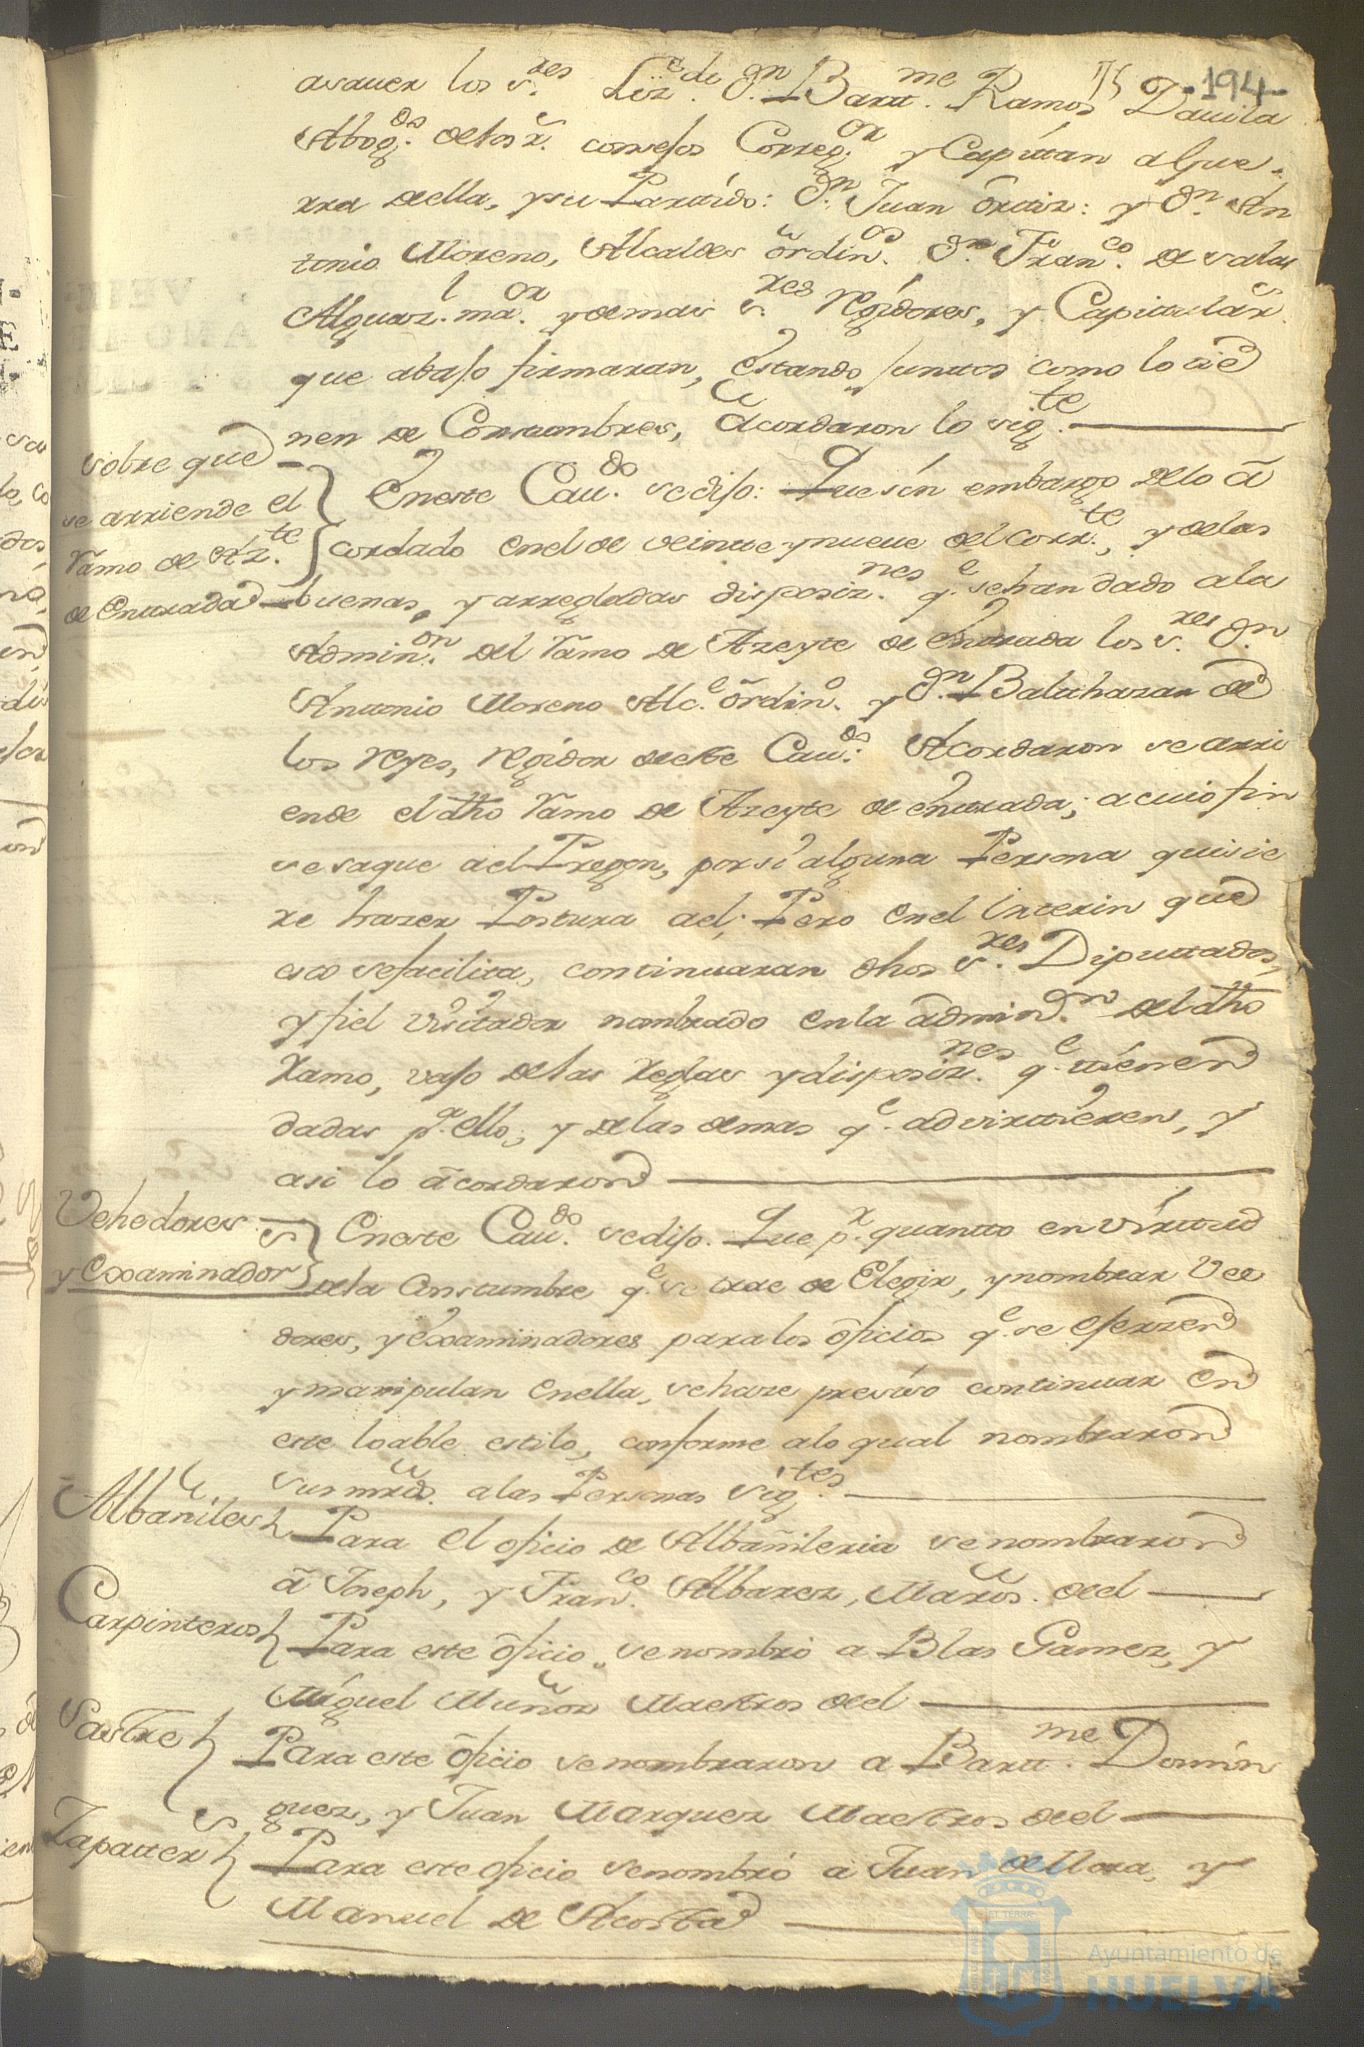 194
asauer los s.res Liz.do d.n Bartt.me Ramos Dauila
Abog.do delos R.s consejos Correg.or y Capittan a Gue
rra della, y su Parttido: d.n Juan Orttiz: y d.n An
tonio Moreno, Alcaldes ordin.os d.n Fran.co de Salas
Alguaz.l ma.or y demas s.res rexidores, y Capitulares
que abajo firmaran, estando juntos como lo tie
nen de Costumbres, acordaron lo sig.te
sobre que
se arriende el
ramo de Az.te
de Entrada
En este Cau.do se dijo: Que sin embargo delo a
cordado en el de veinte y nueue del corr.te, y delas
buenas, y arregladas disposiz.nes q.e se han dado ala
Admin.on del ramo de Azeyte de entrada los s.res d.n
Antonio Moreno Alc.e ordin.o y d.n Balthazar de
los reyes, regidor deeste Cau.do Acordaron se arri
ende el dho ramo de Azeyte de entrada; a cuio fin
se saque ael Pregon, por si alguna Persona quisie
re hazer Postura ael; Pero en el interin que
esto se facilita, continuaran dhos s.res Diputtados,
y fiel visitador nombrado en la admin.on del dho
Ramo, vajo delas reglas y disposiz.nes q.e tienen
dadas p.a ello; y delas demas q.e advirttieren, y
asi lo acordaron
Vehedores
y examinadors
En este Cau.do se dijo. Que p.r quantto en virttud
dela Constumbre q.e se trae de Elegir, y nombrar Vee
dores, y examinadores para los oficios q.e se ejerzen
y manipulan en ella, se haze preciso continuar en
este loable estilo, conforme alo qual nombraron
sus mrds. alas Personas sig.tes
Albañiles
Para el oficio de Albañileria se nombraron
a Joseph, y Fran.co Albarez, Maros. deel
Carpinteros
Para este oficio se nombró a Blas Gamez, y
Miguel Muñoz Maestros deel
Sastre
Para este oficio se nombraron a Bartt.me Domin
guez, y Juan Marquez Maestros deel
Zapatters
Para este oficio se nombró a Juan de Mora, y
Manuel de Acosta
Ayuntamiento de
HUELVA